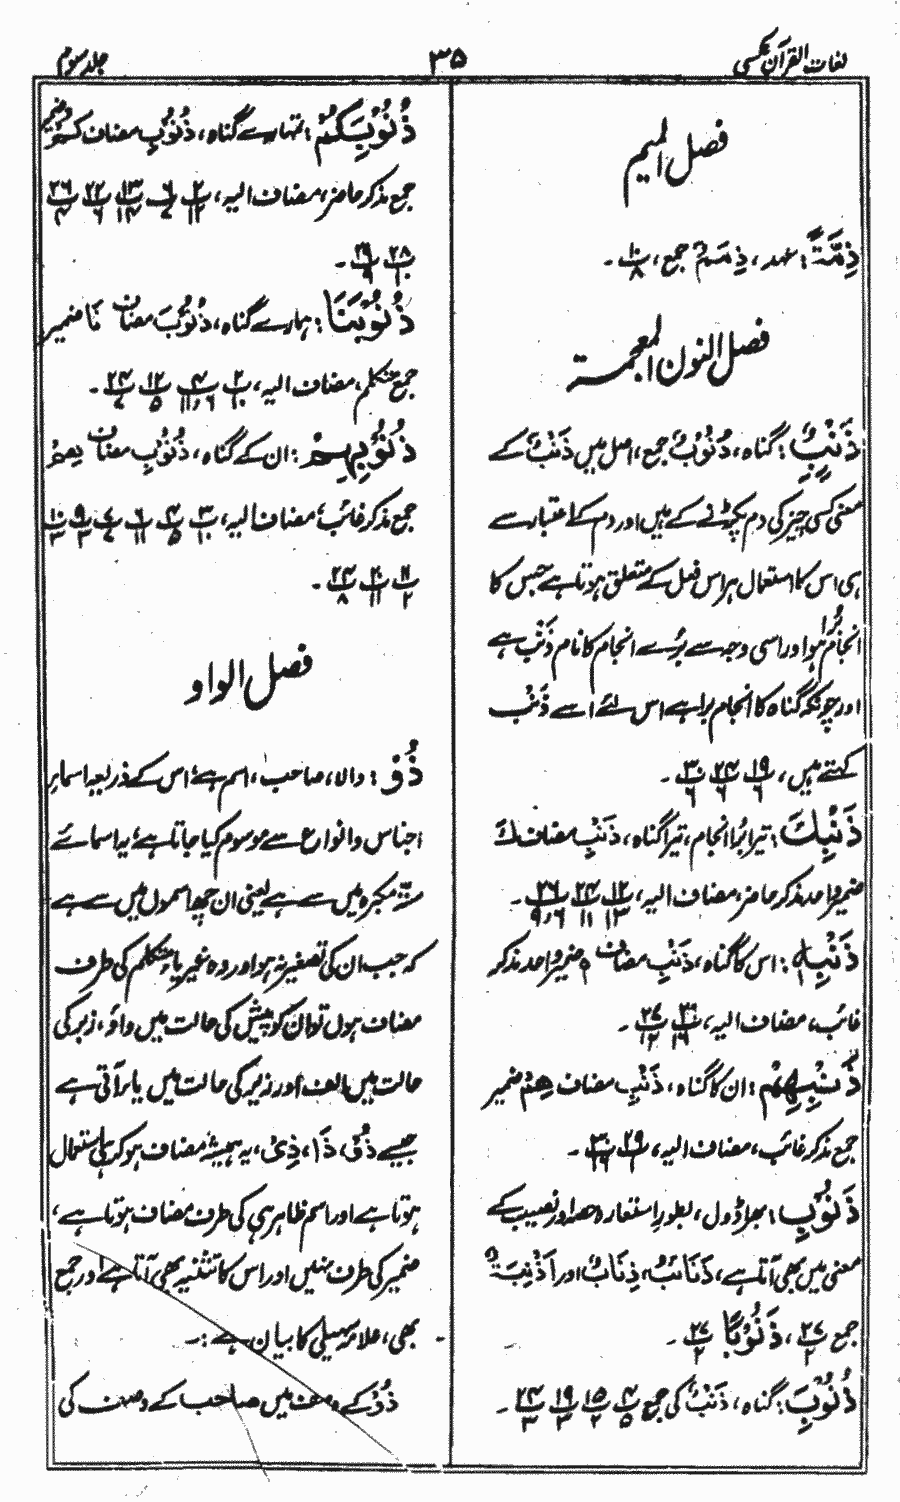 لغات القرآن عکسی
۳۵
جلد سوم
فصل المیم
ذِمَّةً: عہد، ذِمَمٌ جمع، ۱۰/۸ ۔
فصل النون المعجمة
ذَنْبٌ: گناہ، ذُنُوْبٌ جمع، اصل میں ذَنْبٌ کے
معنی کسی چیز کی دم پکڑنے کے ہیں اور دم کے اعتبار سے
ہی اس کا استعمال ہر اس فعل کے متعلق ہوتا ہے جس کا
انجام برا ہو اور اسی وجہ سے برے انجام کا نام ذَنْب ہے
اور چونکہ گناہ کا انجام برا ہے اس لئے اسے ذَنْب
کہتے ہیں، ۱۹/۶ ۲۴/۶ ۳۰/۶ ۔
ذَنْبِكَ: تیرا برا انجام، تیرا گناہ، ذَنْبِ مضاف كَ
ضمیر واحد مذکر حاضر، مضاف الیہ، ۱۲/۱۳ ۲۴/۱۱ ۲۶/۶،۹ ۔
ذَنْبِهٖ: اس کا گناہ، ذَنْبِ مضاف ہ ضمیر واحد مذکر
غائب، مضاف الیہ، ۲۰/۱۶ ۲۷/۱۲ ۔
ذَنْبِهِمْ: ان کا گناہ، ذَنْبِ مضاف هِمْ ضمیر
جمع مذکر غائب، مضاف الیہ، ۲۹/۱ ۳۰/۱۶ ۔
ذَنُوْبٍ: بھرا ڈول، بطور استعارہ حصہ اور نصیب کے
معنی میں بھی آتا ہے، ذَنَائِبُ، ذِنَابٌ اور اَذْنِبَةٌ
جمع ۲۷/۲، ذَنُوْبًا ۲۷/۲ ۔
ذُنُوْبَ: گناہ، ذَنْبٌ کی جمع ۴/۵ ۱۵/۲ ۱۹/۳ ۲۴/۳ ۔
ذُنُوْبِكُمْ: تمہارے گناہ، ذُنُوْبِ مضاف كُمْ ضمیر
جمع مذکر حاضر، مضاف الیہ، ۳/۱۲ ۶/۷ ۱۳/۱۴ ۲۲/۶ ۲۶/۴
۲۸/۱۰ ۲۹/۹ ۔
ذُنُوْبَنَا: ہمارے گناہ، ذُنُوْبَ مضاف نَا ضمیر
جمع متکلم، مضاف الیہ، ۳/۱۰ ۴/۶،۱۱ ۱۲/۵ ۲۴/۷ ۔
ذُنُوْبِهِمْ: ان کے گناہ، ذُنُوْبِ مضاف هِمْ
جمع مذکر غائب، مضاف الیہ، ۳/۱۰ ۴/۵ ۶/۱۱ ۷/۷ ۹/۳ ۱۰/۳
۱۱/۲ ۲۰/۱۱ ۲۴/۸ ۔
فصل الواو
ذُوْ: والا، صاحب، اسم ہے، اس کے ذریعہ اسمائے
اجناس و انواع سے موسوم کیا جاتا ہے، یہ اسمائے
ستہ مکبرہ میں سے ہے یعنی ان چھ اسموں میں سے ہے
کہ جب ان کی تصغیر نہ ہو اور وہ غیر یائے متکلم کی طرف
مضاف ہوں تو ان کو پیش کی حالت میں واؤ، زبر کی
حالت میں الف اور زیر کی حالت میں یا ر آتی ہے
جیسے ذُوْ، ذَا، ذِیْ، یہ ہمیشہ مضاف ہو کر ہی استعمال
ہوتا ہے اور اسم ظاہر ہی کی طرف مضاف ہوتا ہے،
ضمیر کی طرف نہیں اور اس کا تثنیہ بھی آتا ہے اور جمع
بھی، علامہ سہیلی کا بیان ہے :۔
ذُوْ کے وصف میں صاحب کے وصف کی